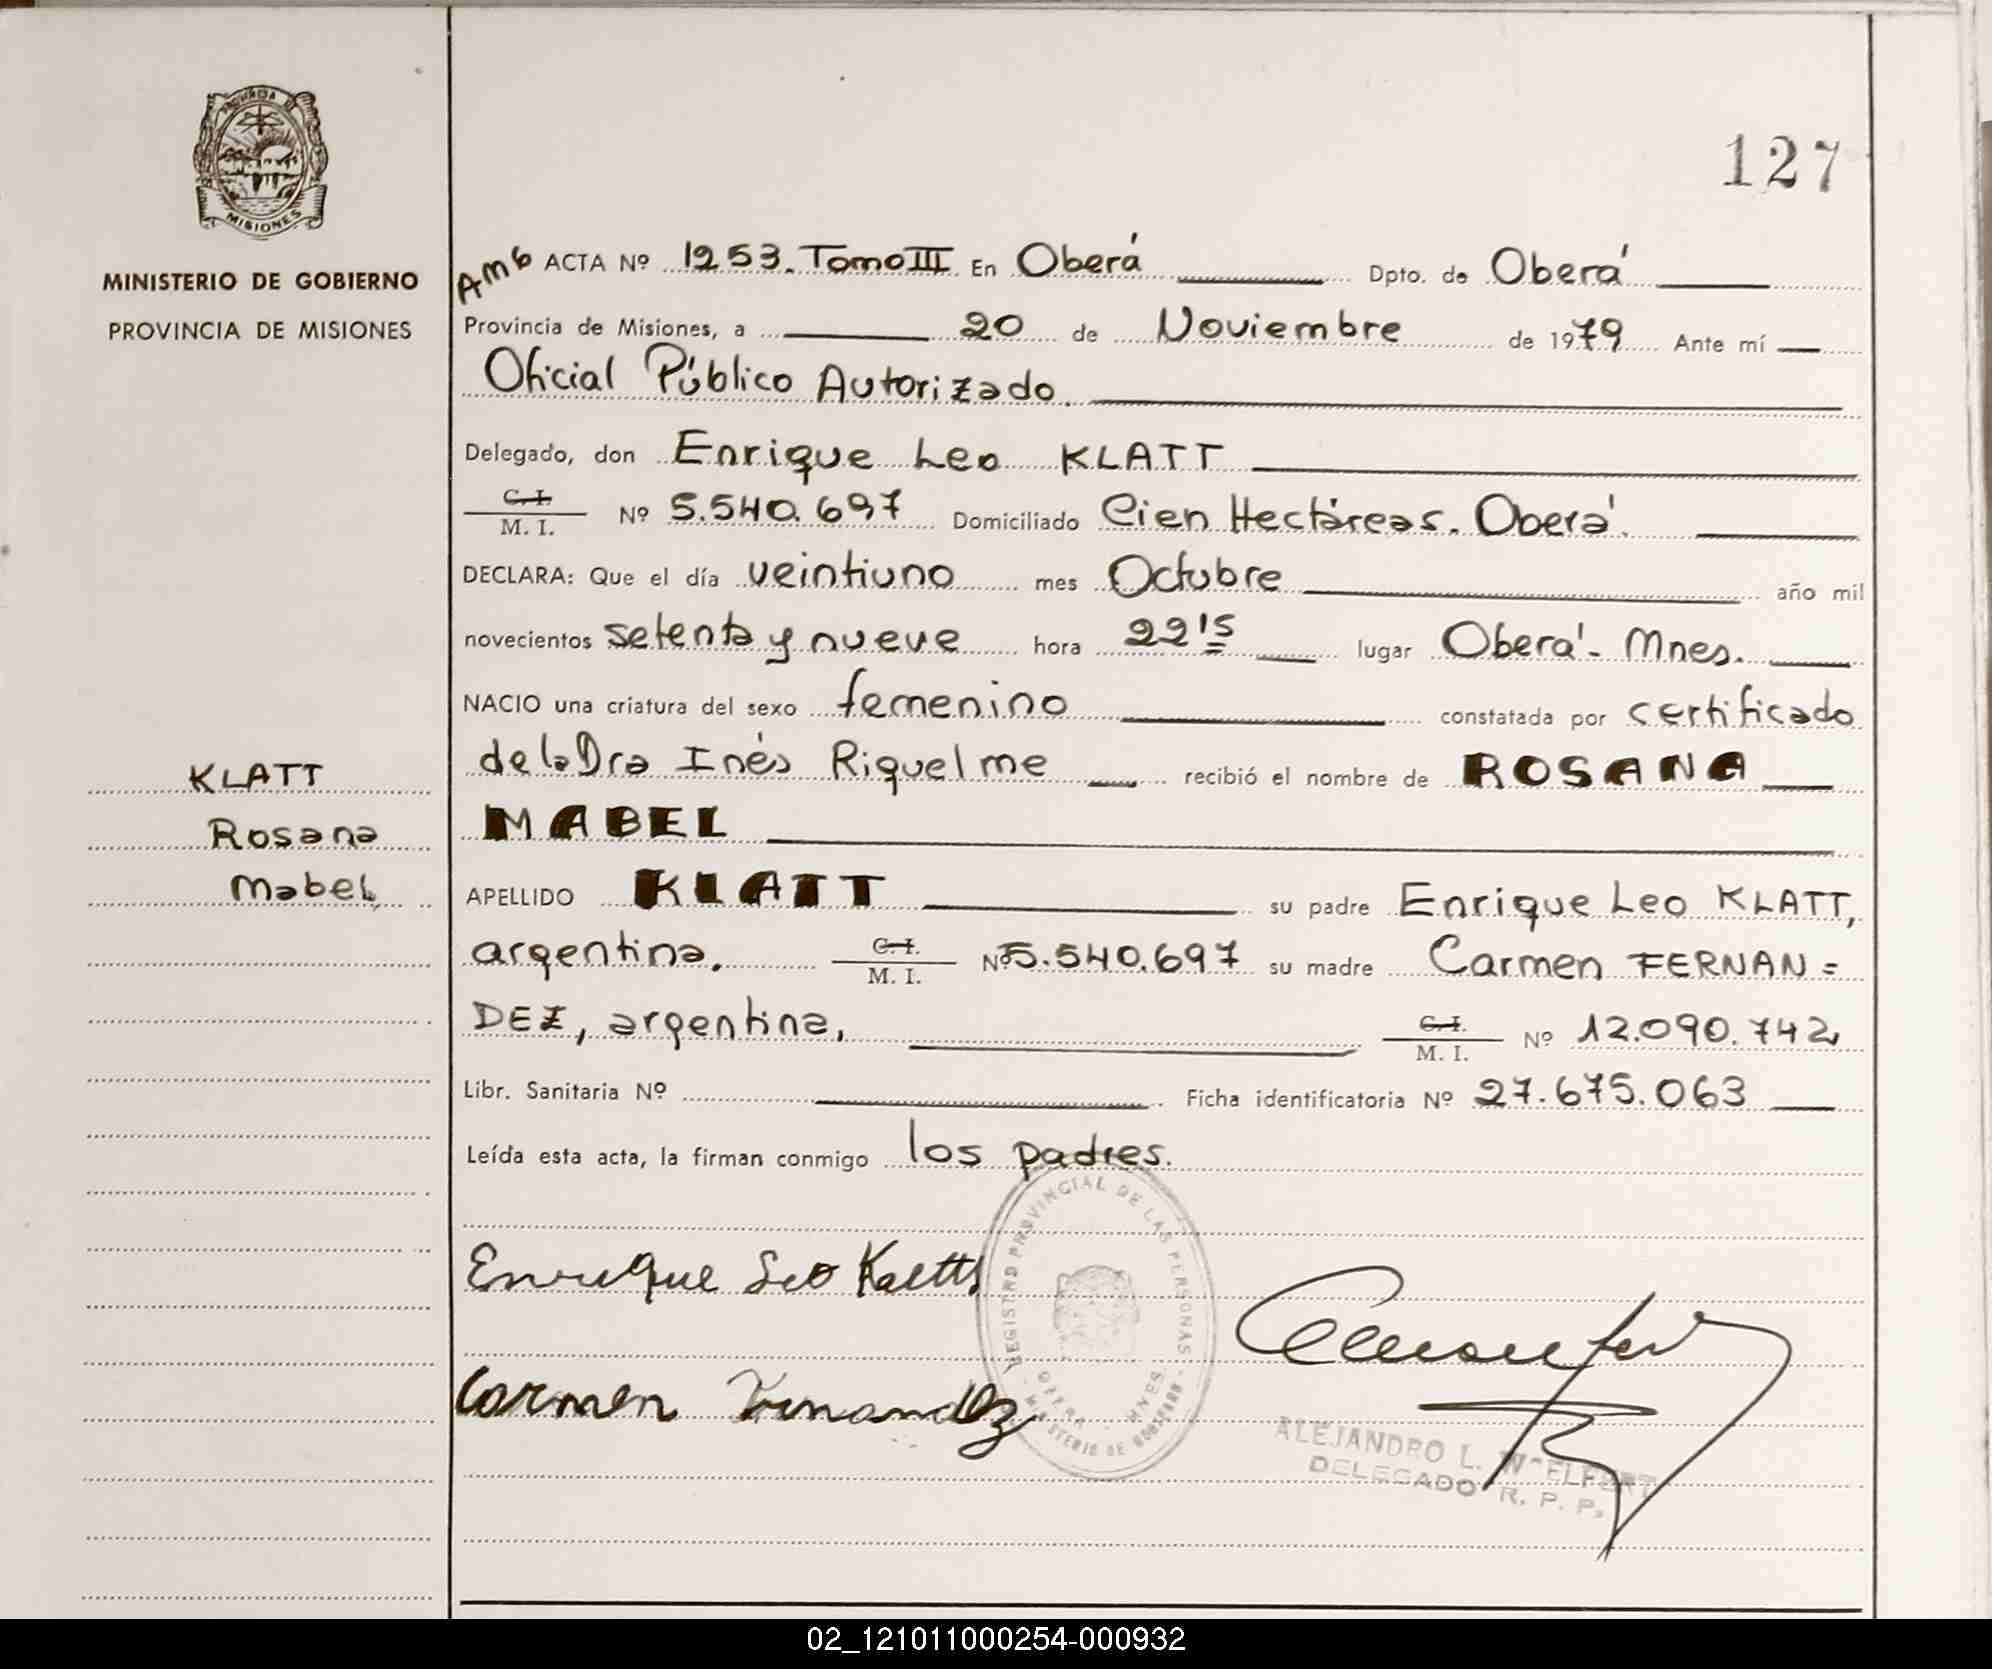 PROVINCIA DE
MISIONES
MINISTERIO DE GOBIERNO
PROVINCIA DE MISIONES
KLATT
Rosana
Mabel
127
AmG ACTA Nº 1253. Tomo III En Oberá Dpto. de Oberá
Provincia de Misiones, a 20 de Noviembre de 1979 Ante mí
Oficial Público Autorizado.
Delegado, don Enrique Leo KLATT
C. I.
M. I. Nº 5.540.697 Domiciliado Cien Hectáreas. Oberá.
DECLARA: Que el día veintiuno mes Octubre año mil
novecientos setenta y nueve hora 22 15 lugar Oberá - Mnes.
NACIO una criatura del sexo femenino constatada por certificado
de la Dra Inés Riquelme recibió el nombre de ROSANA
MABEL
APELLIDO KLATT su padre Enrique Leo KLATT,
argentina. C. I.
M. I. Nº 5.540.697 su madre Carmen FERNAN=
DEZ, argentina, C. I.
M. I. Nº 12.090.742
Libr. Sanitaria Nº Ficha identificatoria Nº 27.675.063
Leída esta acta, la firman conmigo los padres.
REGISTRO PROVINCIAL DE LAS PERSONAS
OBERA - MNES.
MINISTERIO DE GOBIERNO
Enrique Leo Klatt
Carmen Fernandez
ALEJANDRO L.
DELEGADO R. P. P.
02_121011000254-000932